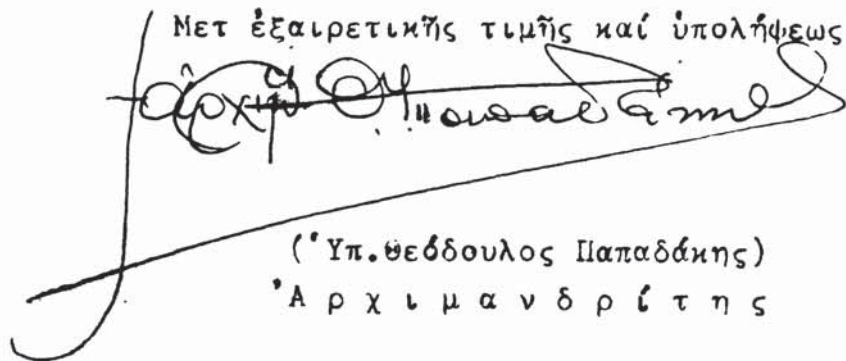 Μετ ἐξαιρετικῆς τιμῆς καί ὑπολήψεως
(Ὑπ.Θεόδουλος Παπαδάκης)
Ἀ ρ χ ι μ α ν δ ρ ί τ η ς